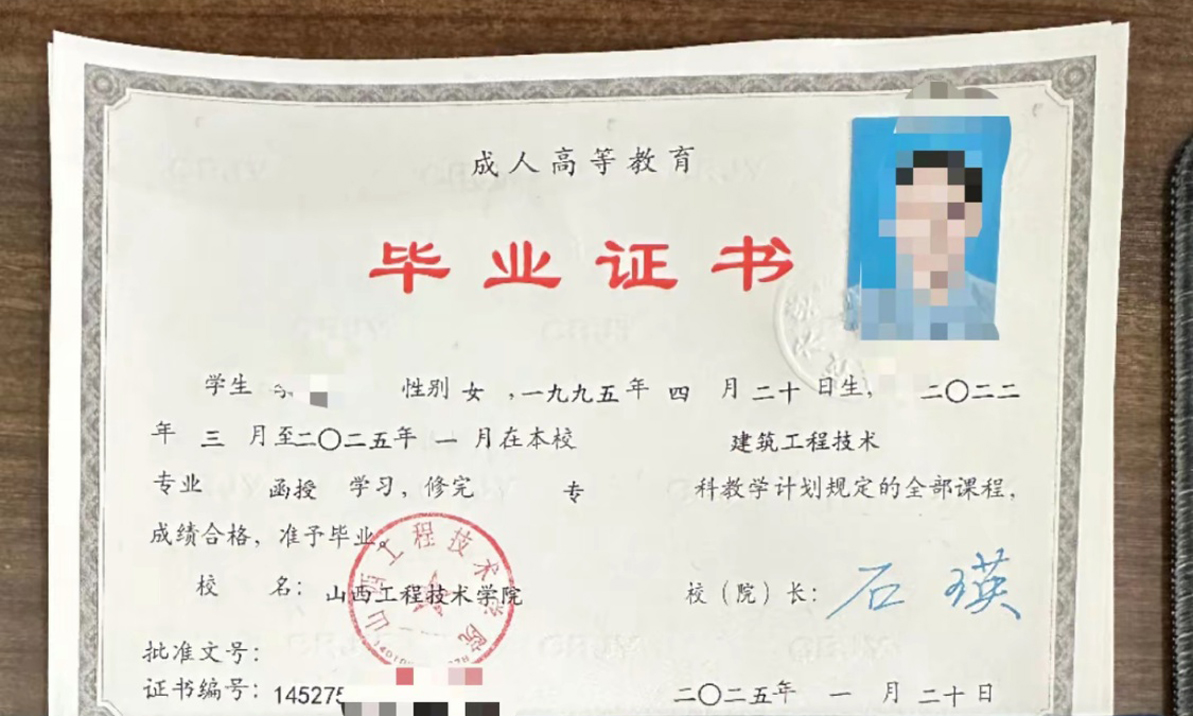 成人高等教育
毕业证书
学生 性别 女 ,一九九五年 四 月二十日生, 二〇二二
年 三 月至二〇二五年 一 月在本校 建筑工程技术
专业 函授 学习, 修完 专 科教学计划规定的全部课程,
成绩合格, 准予毕业。
校 名: 山西工程技术学院 校(院)长: 石瑛
山西工程技术学院
批准文号:
证书编号: 145275 二〇二五年 一 月二十日